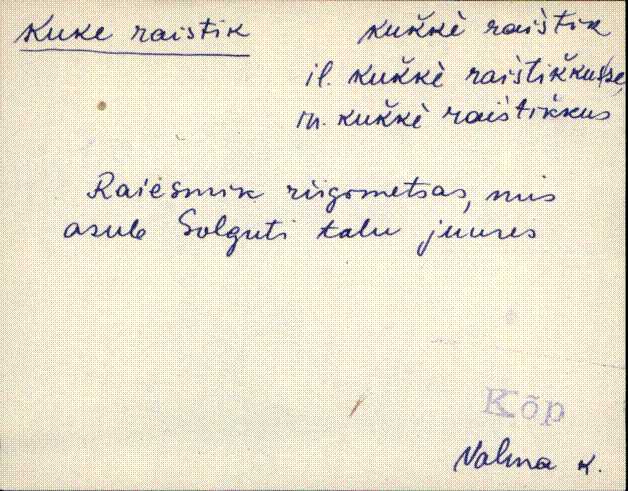 Kuke raistik kuk̆kè raìstik
il. kuk̆kè raìstik̆kusse,
in. kuk̆kè raìstik̆kus
Raiesmik riigometsas, mis
asub Solguti talu juures
Kõp
Valma k.